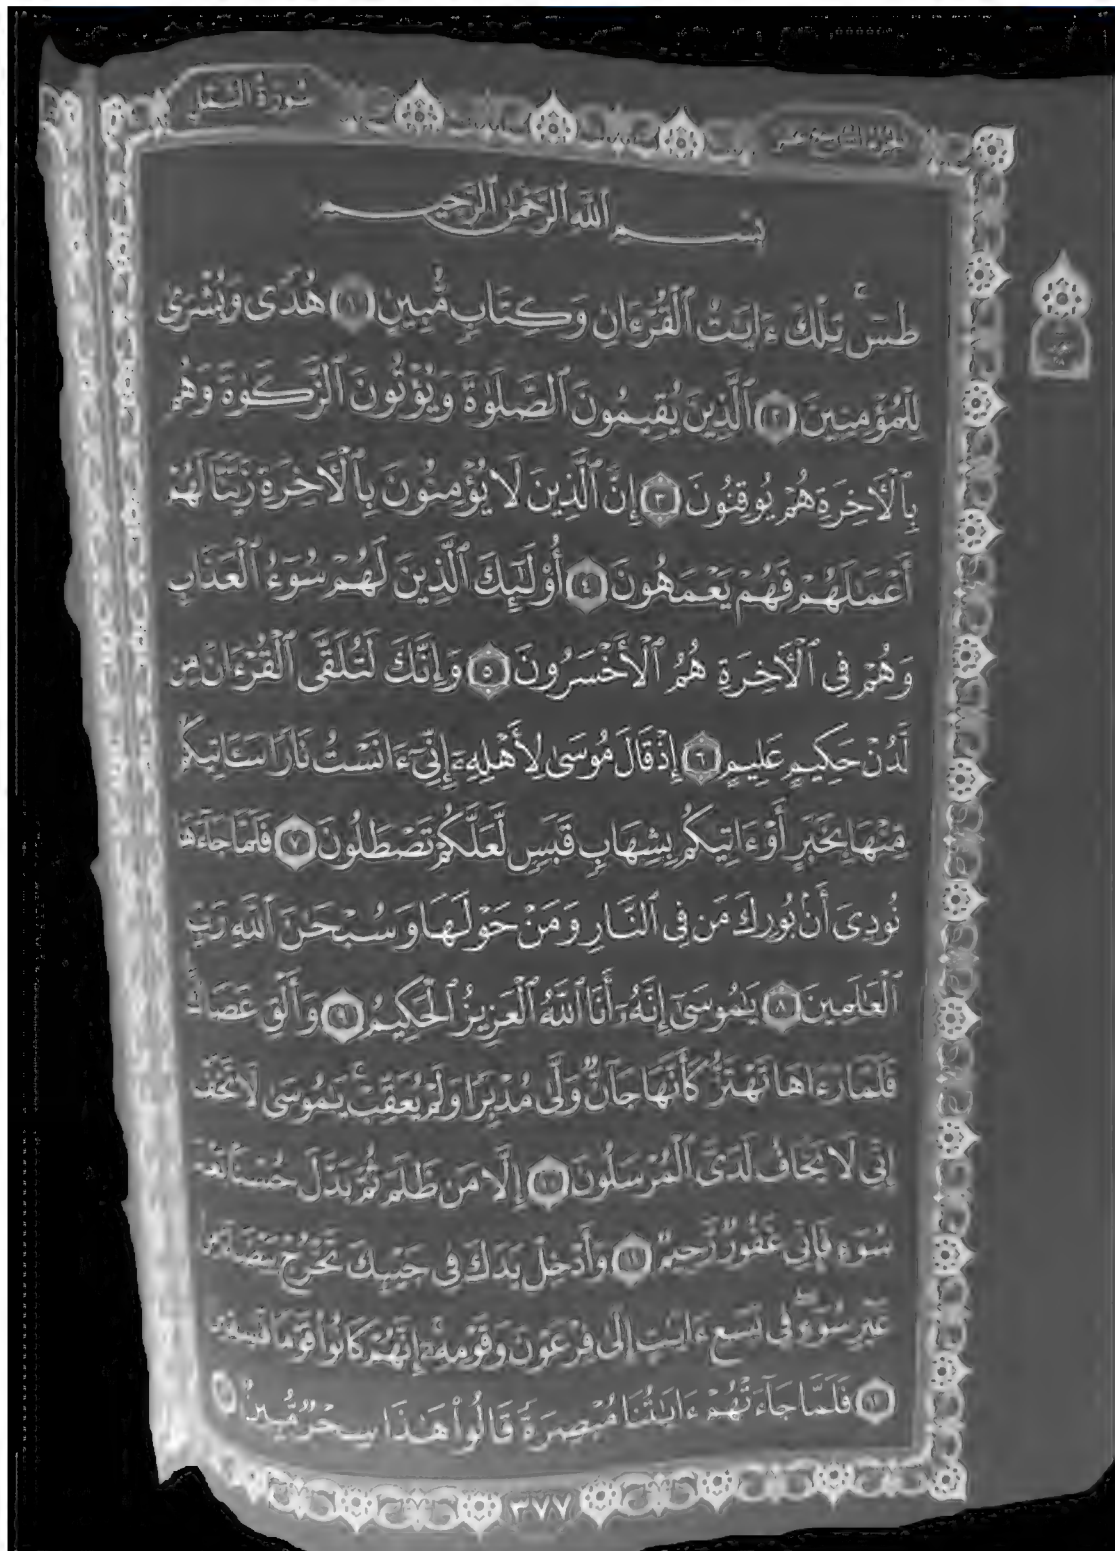 سُورَةُ النَّمْلِ
الجزء التاسع عشر
بِسْمِ ٱللَّهِ ٱلرَّحْمَٰنِ ٱلرَّحِيمِ
طسٓ تِلْكَ ءَايَٰتُ ٱلْقُرْءَانِ وَكِتَابٍ مُّبِينٍ ١ هُدًى وَبُشْرَىٰ
لِلْمُؤْمِنِينَ ٢ ٱلَّذِينَ يُقِيمُونَ ٱلصَّلَوٰةَ وَيُؤْتُونَ ٱلزَّكَوٰةَ وَهُم
بِٱلْأٓخِرَةِ هُمْ يُوقِنُونَ ٣ إِنَّ ٱلَّذِينَ لَا يُؤْمِنُونَ بِٱلْأٓخِرَةِ زَيَّنَّا لَهُمْ
أَعْمَٰلَهُمْ فَهُمْ يَعْمَهُونَ ٤ أُوْلَٰٓئِكَ ٱلَّذِينَ لَهُمْ سُوٓءُ ٱلْعَذَابِ
وَهُمْ فِى ٱلْأٓخِرَةِ هُمُ ٱلْأَخْسَرُونَ ٥ وَإِنَّكَ لَتُلَقَّى ٱلْقُرْءَانَ مِن
لَّدُنْ حَكِيمٍ عَلِيمٍ ٦ إِذْ قَالَ مُوسَىٰ لِأَهْلِهِۦٓ إِنِّىٓ ءَانَسْتُ نَارًا سَـَٔاتِيكُم
مِّنْهَا بِخَبَرٍ أَوْ ءَاتِيكُم بِشِهَابٍ قَبَسٍ لَّعَلَّكُمْ تَصْطَلُونَ ٧ فَلَمَّا جَآءَهَا
نُودِىَ أَنۢ بُورِكَ مَن فِى ٱلنَّارِ وَمَنْ حَوْلَهَا وَسُبْحَٰنَ ٱللَّهِ رَبِّ
ٱلْعَٰلَمِينَ ٨ يَٰمُوسَىٰٓ إِنَّهُۥٓ أَنَا ٱللَّهُ ٱلْعَزِيزُ ٱلْحَكِيمُ ٩ وَأَلْقِ عَصَاكَ
فَلَمَّا رَءَاهَا تَهْتَزُّ كَأَنَّهَا جَآنٌّ وَلَّىٰ مُدْبِرًا وَلَمْ يُعَقِّبْ يَٰمُوسَىٰ لَا تَخَفْ
إِنِّى لَا يَخَافُ لَدَىَّ ٱلْمُرْسَلُونَ ١٠ إِلَّا مَن ظَلَمَ ثُمَّ بَدَّلَ حُسْنًۢا بَعْدَ
سُوٓءٍ فَإِنِّى غَفُورٌ رَّحِيمٌ ١١ وَأَدْخِلْ يَدَكَ فِى جَيْبِكَ تَخْرُجْ بَيْضَآءَ مِنْ
غَيْرِ سُوٓءٍ فِى تِسْعِ ءَايَٰتٍ إِلَىٰ فِرْعَوْنَ وَقَوْمِهِۦٓ إِنَّهُمْ كَانُوا۟ قَوْمًا فَٰسِقِينَ
١٢ فَلَمَّا جَآءَتْهُمْ ءَايَٰتُنَا مُبْصِرَةً قَالُوا۟ هَٰذَا سِحْرٌ مُّبِينٌ ١٣
٣٧٧